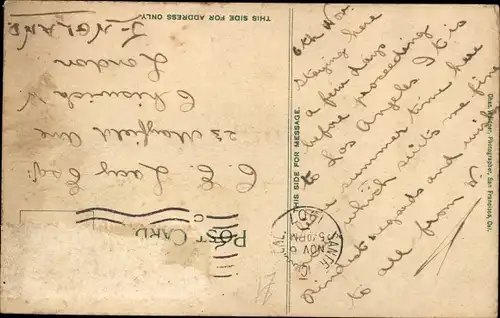 POST CARD
THIS SIDE FOR MESSAGE.
THIS SIDE FOR ADDRESS ONLY.
6th Nov.
Staying here
a few days
before proceeding
to Los Angeles. It is
like summer time here
which suits me fine
Kindest regards and
to all from
SANTA
CAL.
NOV 6
5-PM
C. E. Lacy Esq.
23 Mayfield Ave
Chiswick W
London
ENGLAND
Photographer, San Francisco, Cal.